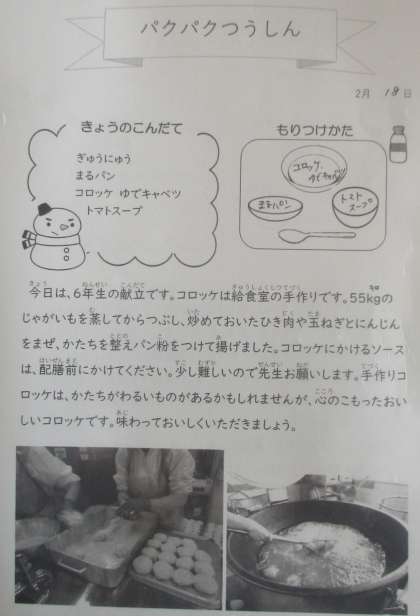 パクパクつうしん
2月 18日
きょうのこんだて
ぎゅうにゅう
まるパン
コロッケ ゆでキャベツ
トマトスープ
もりつけかた
コロッケ、
ゆでキャベツ
まるパン
トマト
スープ
今日は、6年生の献立です。コロッケは給食室の手作りです。55kgの
じゃがいもを蒸してからつぶし、炒めておいたひき肉や玉ねぎとにんじん
をまぜ、かたちを整えパン粉をつけて揚げました。コロッケにかけるソース
は、配膳前にかけてください。少し難しいので先生お願いします。手作りコ
ロッケは、かたちがわるいものがあるかもしれませんが、心のこもったおい
しいコロッケです。味わっておいしくいただきましょう。